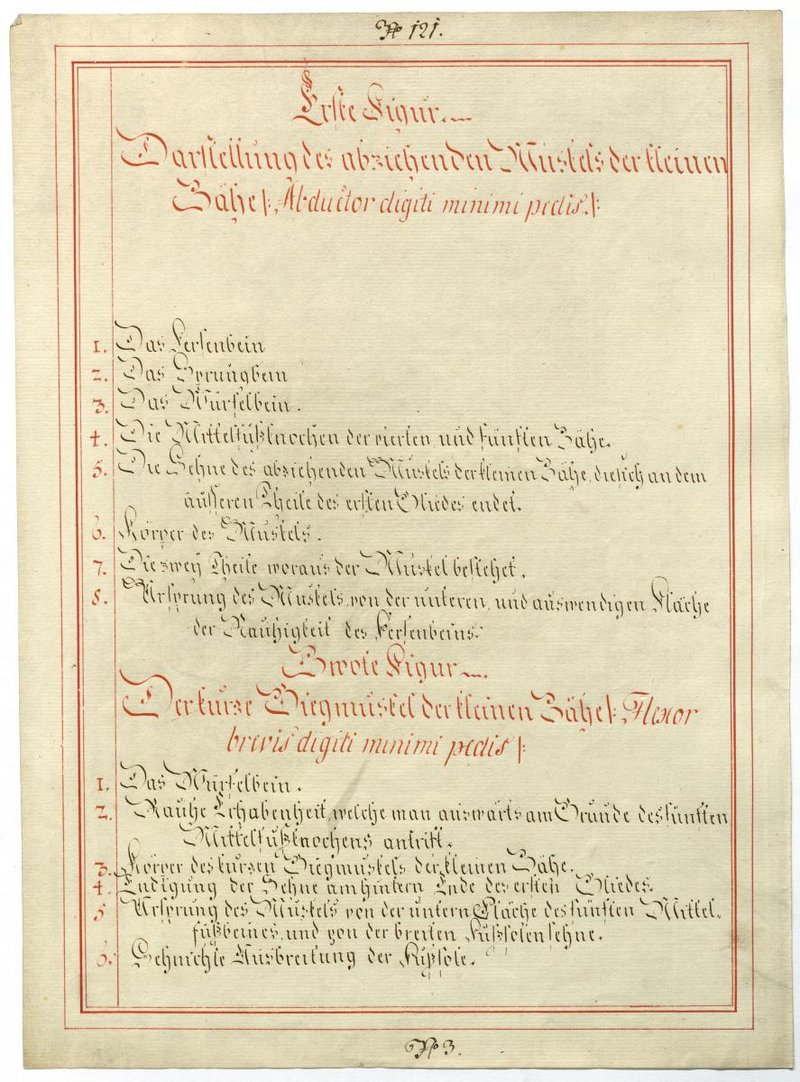 No 121.
Erste Figur.
Darstellung des abziehenden Muskels der kleinen
Zähe |: Abductor digiti minimi pedis. :|
1. Das Fersenbein
2. Das Sprungbein
3. Das Würfelbein.
4. Die Mittelfußknochen der vierten und fünften Zähe.
5. Die Sehne des abziehenden Muskels der kleinen Zähe, die sich an dem
äusseren Theile des ersten Gliedes endet.
6. Körper des Muskels.
7. Die zwey Theile woraus der Muskel bestehet.
8. Ursprung des Muskels, von der unteren, und auswendigen Fläche
der Rauhigkeit des Fersenbeins.
Zwote Figur.
Der kurze Biegmuskel der kleinen Zähe |: Flexor
brevis digiti minimi pedis :|
1. Das Würfelbein.
2. Rauhe Erhabenheit, welche man auswärts am Grunde des fünften
Mittelfußknochens antritt.
3. Körper des kurzen Biegmuskels der kleinen Zähe.
4. Endigung der Sehne am hintern Ende des ersten Gliedes.
5 Ursprung des Muskels von der untern Fläche des fünften Mittel-
fußbeines, und von der breiten Fußsolensehne.
6. Sehnichte Ausbreitung der Fußsole.
No 3.